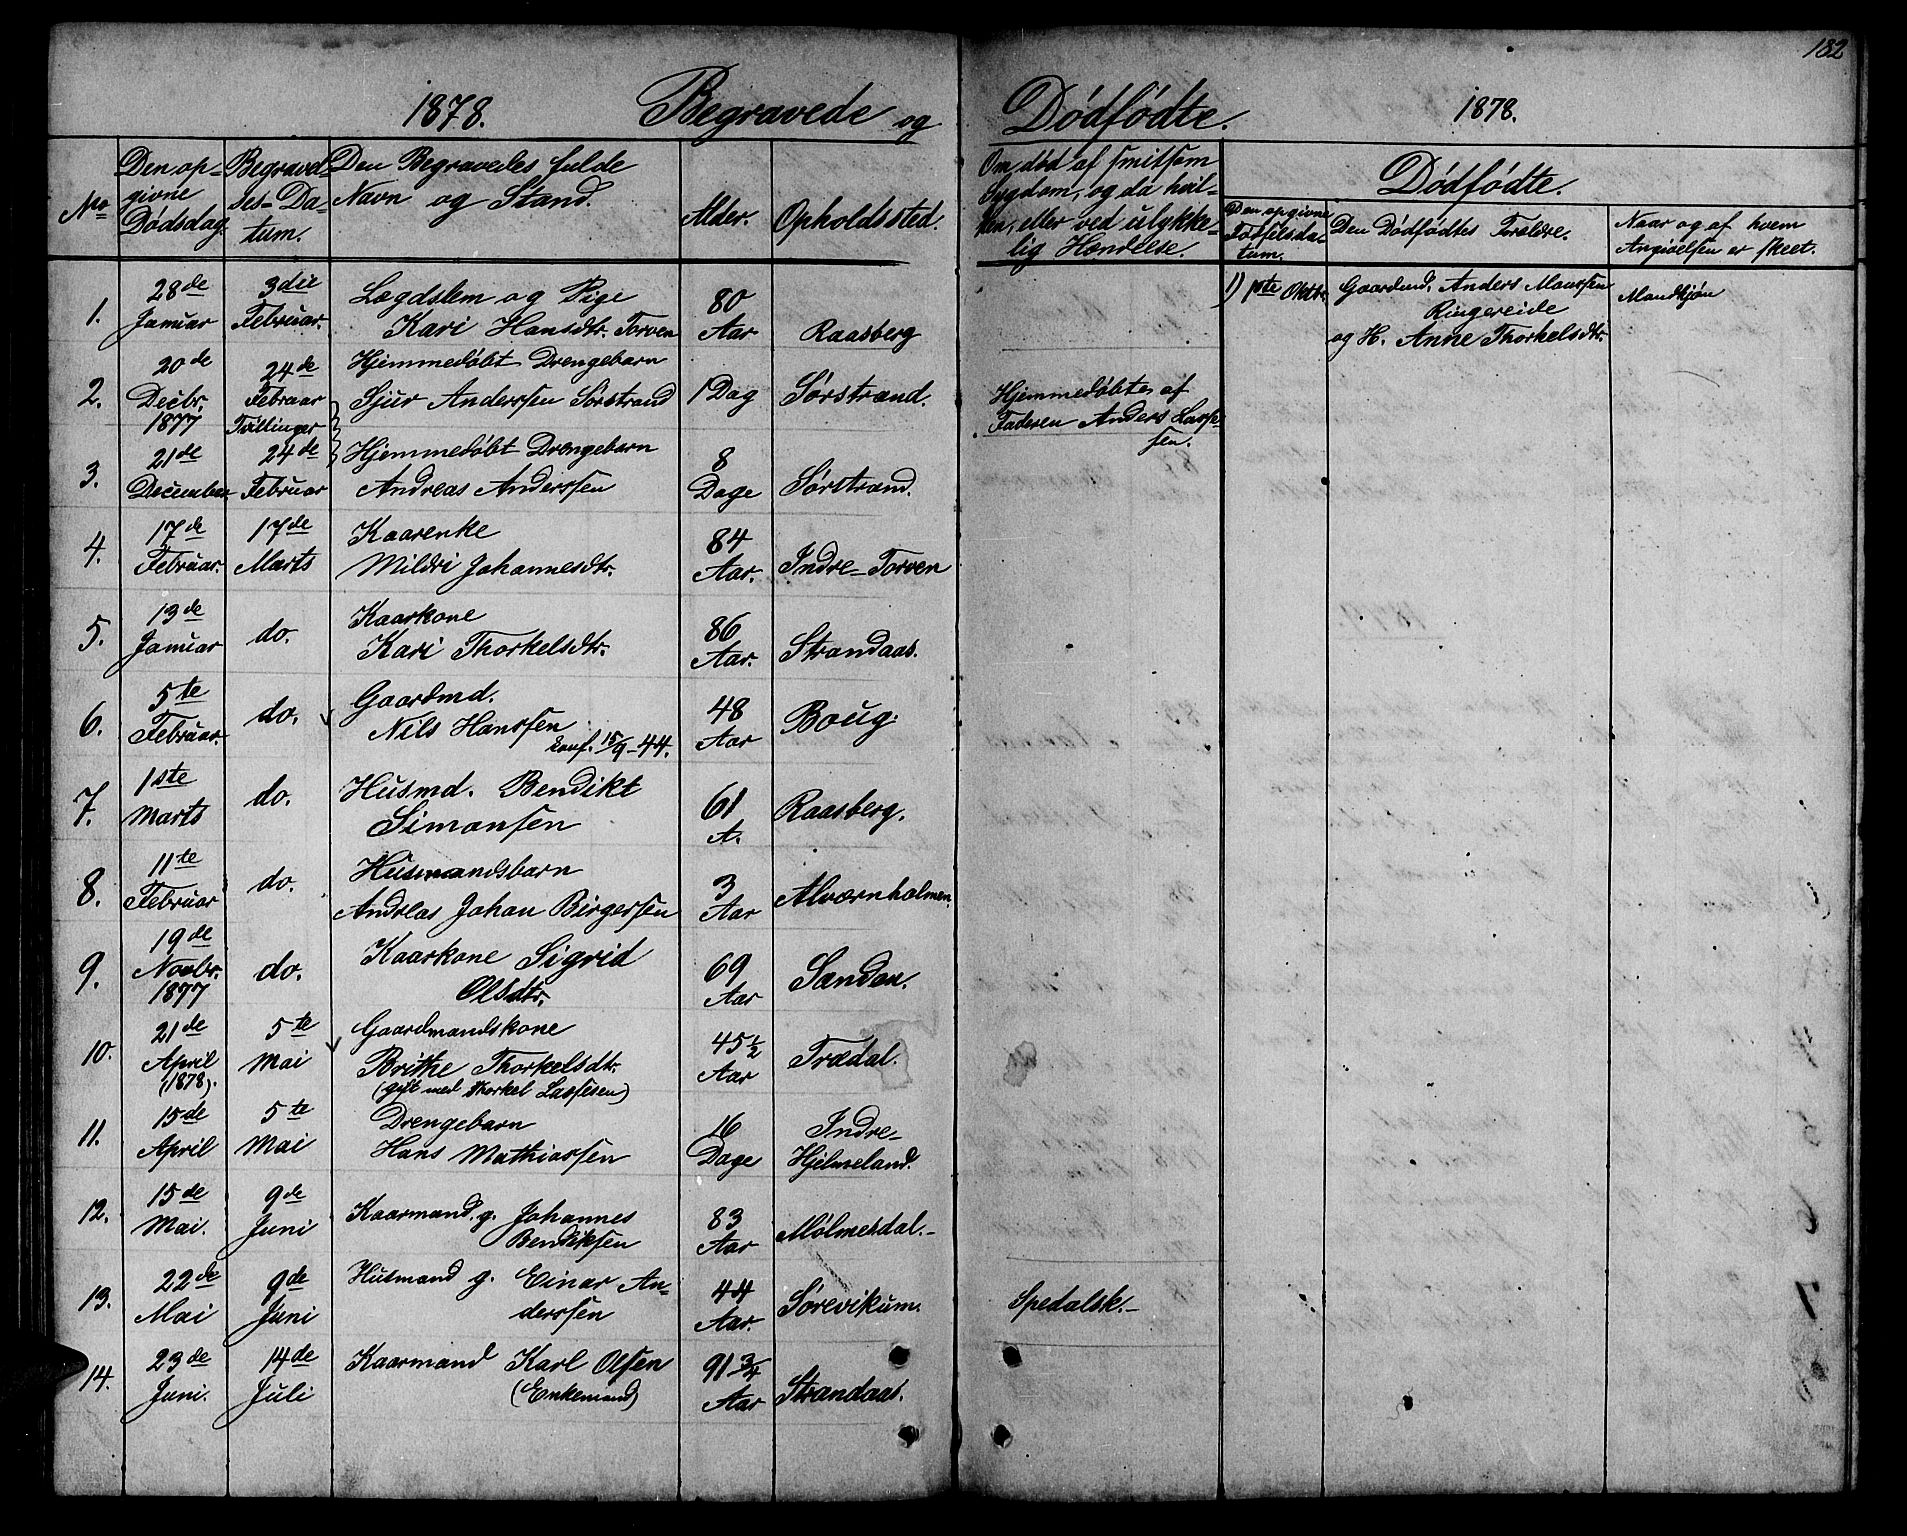 182
1878. Begravede og Dødfødte. 1878.
No
Den op-
givne
Dødsdag.
Begravel-
ses-Da-
tum.
Den Begravedes fulde
Navn og Stand.
Alder.
Opholdssted.
Om død af smitsom
Sygdom, og da hvil-
ken, eller ved ulykke-
lig Hændelse.
Dødfødte.
Den opgivne
Fødselsda-
tum.
Den Dødfødtes Forældre.
Naar og af hvem
Angivelsen er skeet.
1.
28de
Januar
3die
Februar.
Lægdslem og Pige
Kari Hansdtr. Torven
80
Aar
Raasberg
1) 1ste Oktbr.
Gaardmd. Anders Monssen
Ringereide
og H. Anne Thorkelsdtr.
Mandkjøn
2.
20de
Decbr.
1877
24de
Februar
Tvillinger
Hjemmedøbt Drengebarn
Sjur Anderssen Sørstrand
1 Dag
Sørstrand.
Hjemmedøbtes af
Faderen Anders Lasse-
sen.
3.
21de
December
24de
Februar
Hjemmedøbt Drengebarn
Andreas Anderssen
8
Dage
Sørstrand.
4.
17de
Februar.
17de
Marts
Kaarenke
Mildri Johannesdtr.
84
Aar.
Indre-Torven
5.
13de
Januar
do.
Kaarkone
Kari Thorkelsdtr.
86
Aar.
Strandaas.
6.
5te
Februar.
do.
Gaardmd.
Nils Hanssen
konf. 15/9-44.
48
Aar
Boug.
7.
1ste
Marts
do.
Husmd. Bendikt
Simonsen
61
A.
Raasberg.
8.
11te
Februar
do.
Husmandsbarn
Andreas Johan Birgersen
3
Aar
Alværnholmen.
9.
19de
Novbr.
1877
do.
Kaarkone Sigrid
Olsdtr.
69
Aar
Sanden.
10.
21de
April
(1878).
5te
Mai
Gaardmandskone
Brithe Thorkelsdtr.
(gift med Thorkel Lassesen)
45 1/2
Aar
Trædal.
11.
15de
April
5te
Mai
Drengebarn
Hans Mathiassen
16
Dage
Indre-
Hjelmeland.
12.
15de
Mai.
9de
Juni
Kaarmand. g. Johannes
Bendiksen
83
Aar
Mølmesdal.-
13.
22de
Mai
9de
Juni
Husmand g. Einar An-
derssen
44
Aar.
Sørevikum.
Spedalsk.-
14.
23de
Juni.
14de
Juli
Kaarmand Karl Olsen
(Enkemand)
91 3/4
Aar
Strandaas.